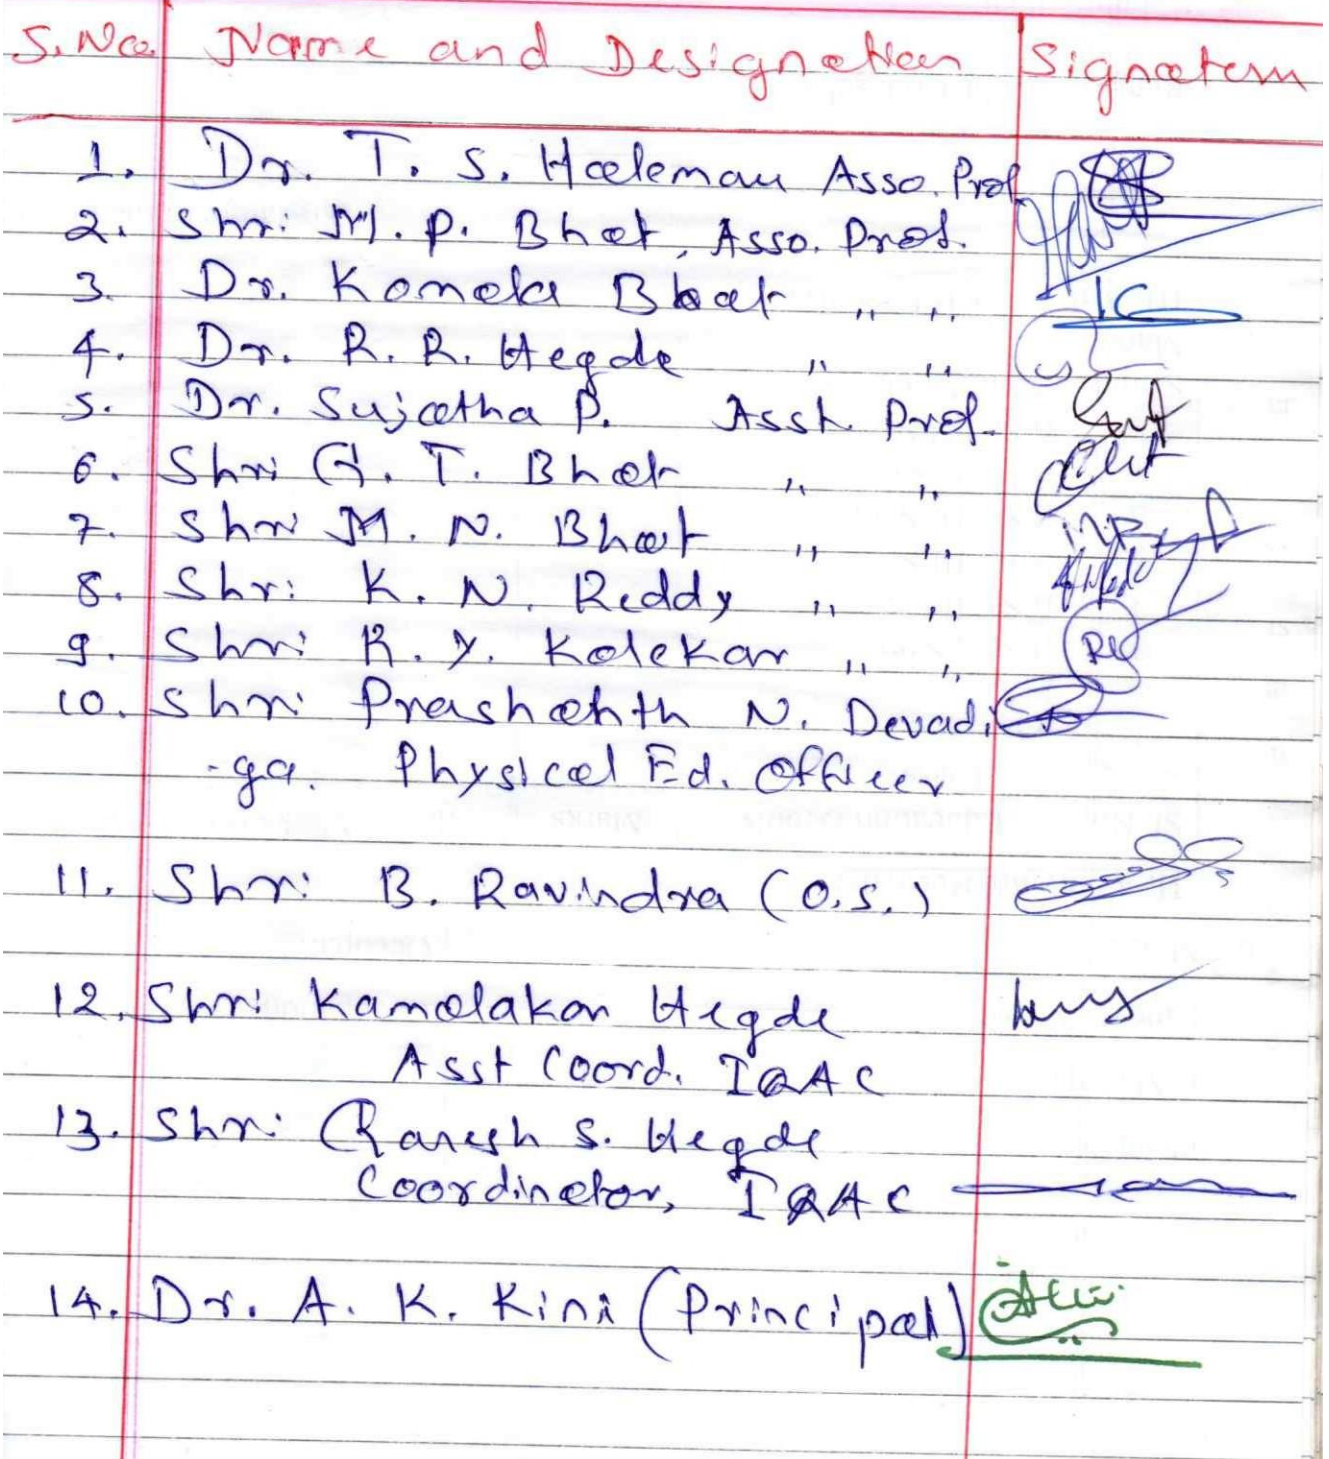 S.No. Name and Designation Signature
1. Dr. T. S. Halemau Asso. Prof
2. Shri M. P. Bhat, Asso. Prof.
3. Dr. Komala Bhat " "
4. Dr. R. R. Hegde " "
5. Dr. Sujatha P. Asst. Prof.
6. Shri G. T. Bhat " "
7. Shri M. N. Bhat " "
8. Shri K. N. Reddy " "
9. Shri R. Y. Kolekar " "
10. Shri Prashanth N. Devadi
-ga. Physical Ed. Officer
11. Shri B. Ravindra (O.S.)
12. Shri Kamalakar Hegde
Asst Coord. IQAC
13. Shri Ganesh S. Hegde
Coordinator, IQAC
14. Dr. A. K. Kini (Principal)